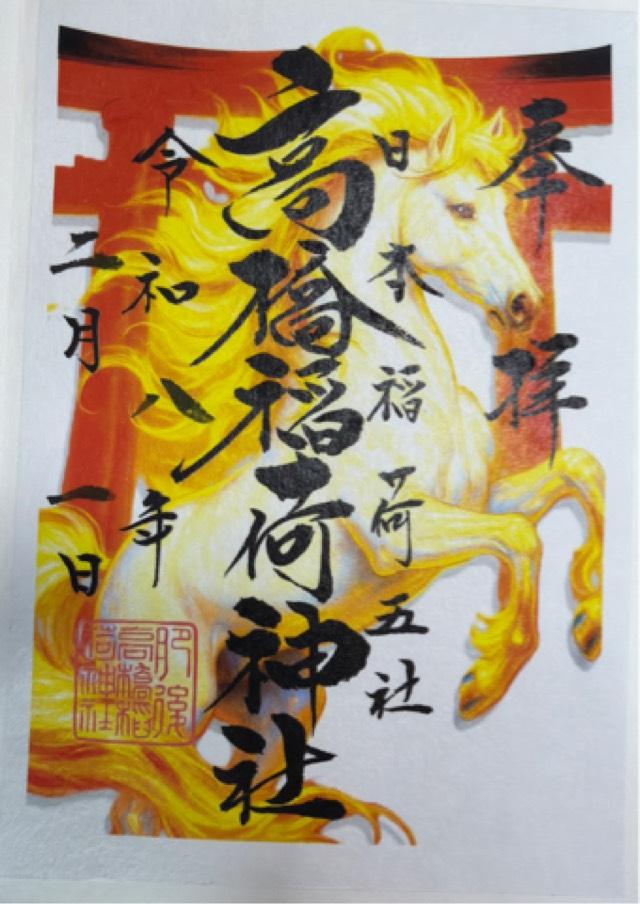 奉拝
日本稲荷五社
高橋稲荷神社
令和八年
二月一日
肥後
高橋稲
荷神社